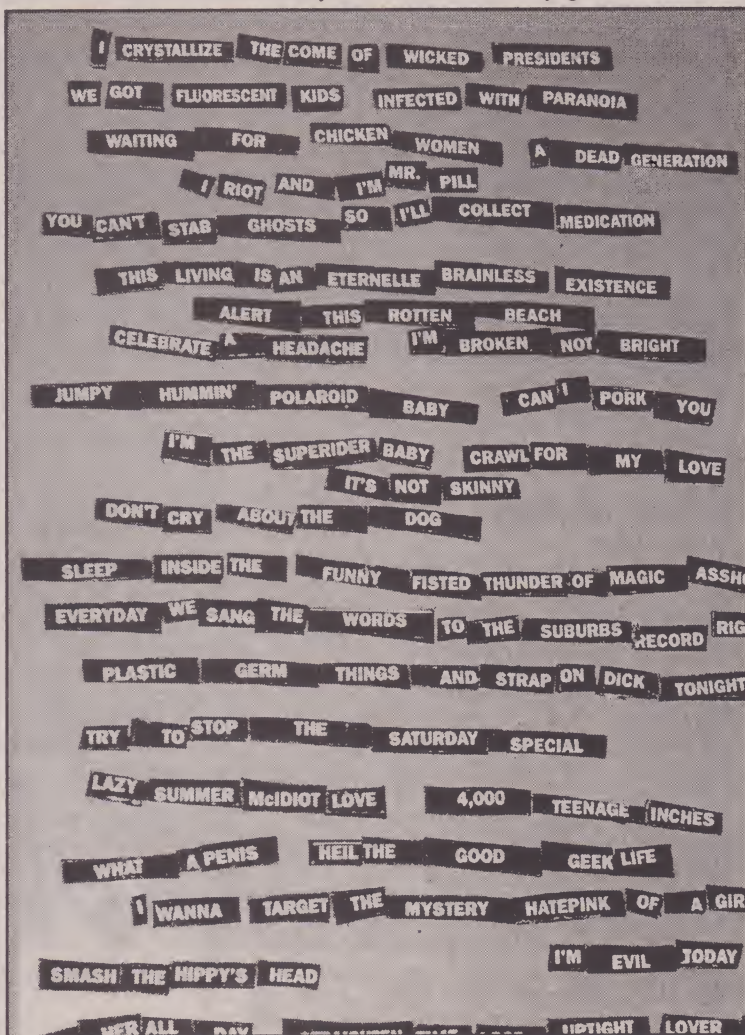 I CRYSTALLIZE THE COME OF WICKED PRESIDENTS
WE GOT FLUORESCENT KIDS INFECTED WITH PARANOIA
WAITING FOR CHICKEN WOMEN A DEAD GENERATION
I RIOT AND I'M MR. PILL
YOU CAN'T STAB GHOSTS SO I'LL COLLECT MEDICATION
THIS LIVING IS AN ETERNELLE BRAINLESS EXISTENCE
ALERT THIS ROTTEN BEACH
CELEBRATE A HEADACHE I'M BROKEN NOT BRIGHT
JUMPY HUMMIN' POLAROID BABY CAN I PORK YOU
I'M THE SUPERIDER BABY CRAWL FOR MY LOVE
IT'S NOT SKINNY
DON'T CRY ABOUT THE DOG
SLEEP INSIDE THE FUNNY FISTED THUNDER OF MAGIC ASSHO
EVERYDAY WE SANG THE WORDS TO THE SUBURBS RECORD RIG
PLASTIC GERM THINGS AND STRAP ON DICK TONIGHT
TRY TO STOP THE SATURDAY SPECIAL
LAZY SUMMER McIDIOT LOVE 4,000 TEENAGE INCHES
WHAT A PENIS HEIL THE GOOD GEEK LIFE
I WANNA TARGET THE MYSTERY HATEPINK OF A GIR
I'M EVIL TODAY
SMASH THE HIPPY'S HEAD
HER ALL DAY UPTIGHT LOVER